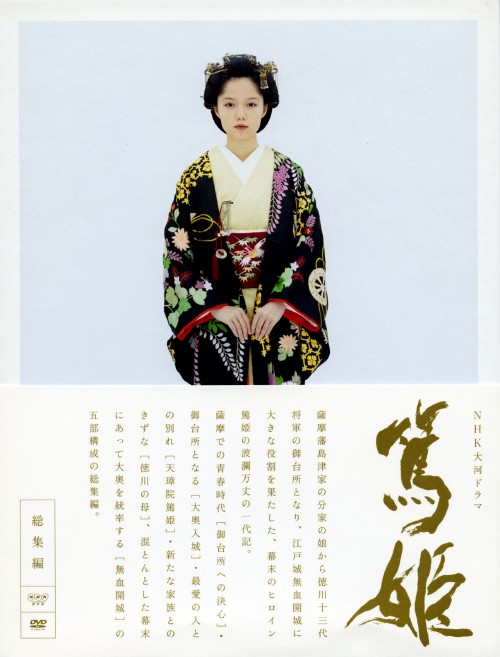 NHK大河ドラマ
篤姫
薩摩藩島津家の分家の娘から徳川十三代
将軍の御台所となり、江戸城無血開城に
大きな役割を果たした、幕末のヒロイン
篤姫の波瀾万丈の一代記。
薩摩での青春時代［御台所への決心］・
御台所となる［大奥入城］・最愛の人と
の別れ［天璋院篤姫］・新たな家族との
きずな［徳川の母］、混とんとした幕末
にあって大奥を統率する［無血開城］の
五部構成の総集編。
総集編
NHK
DVD
DVD
VIDEO